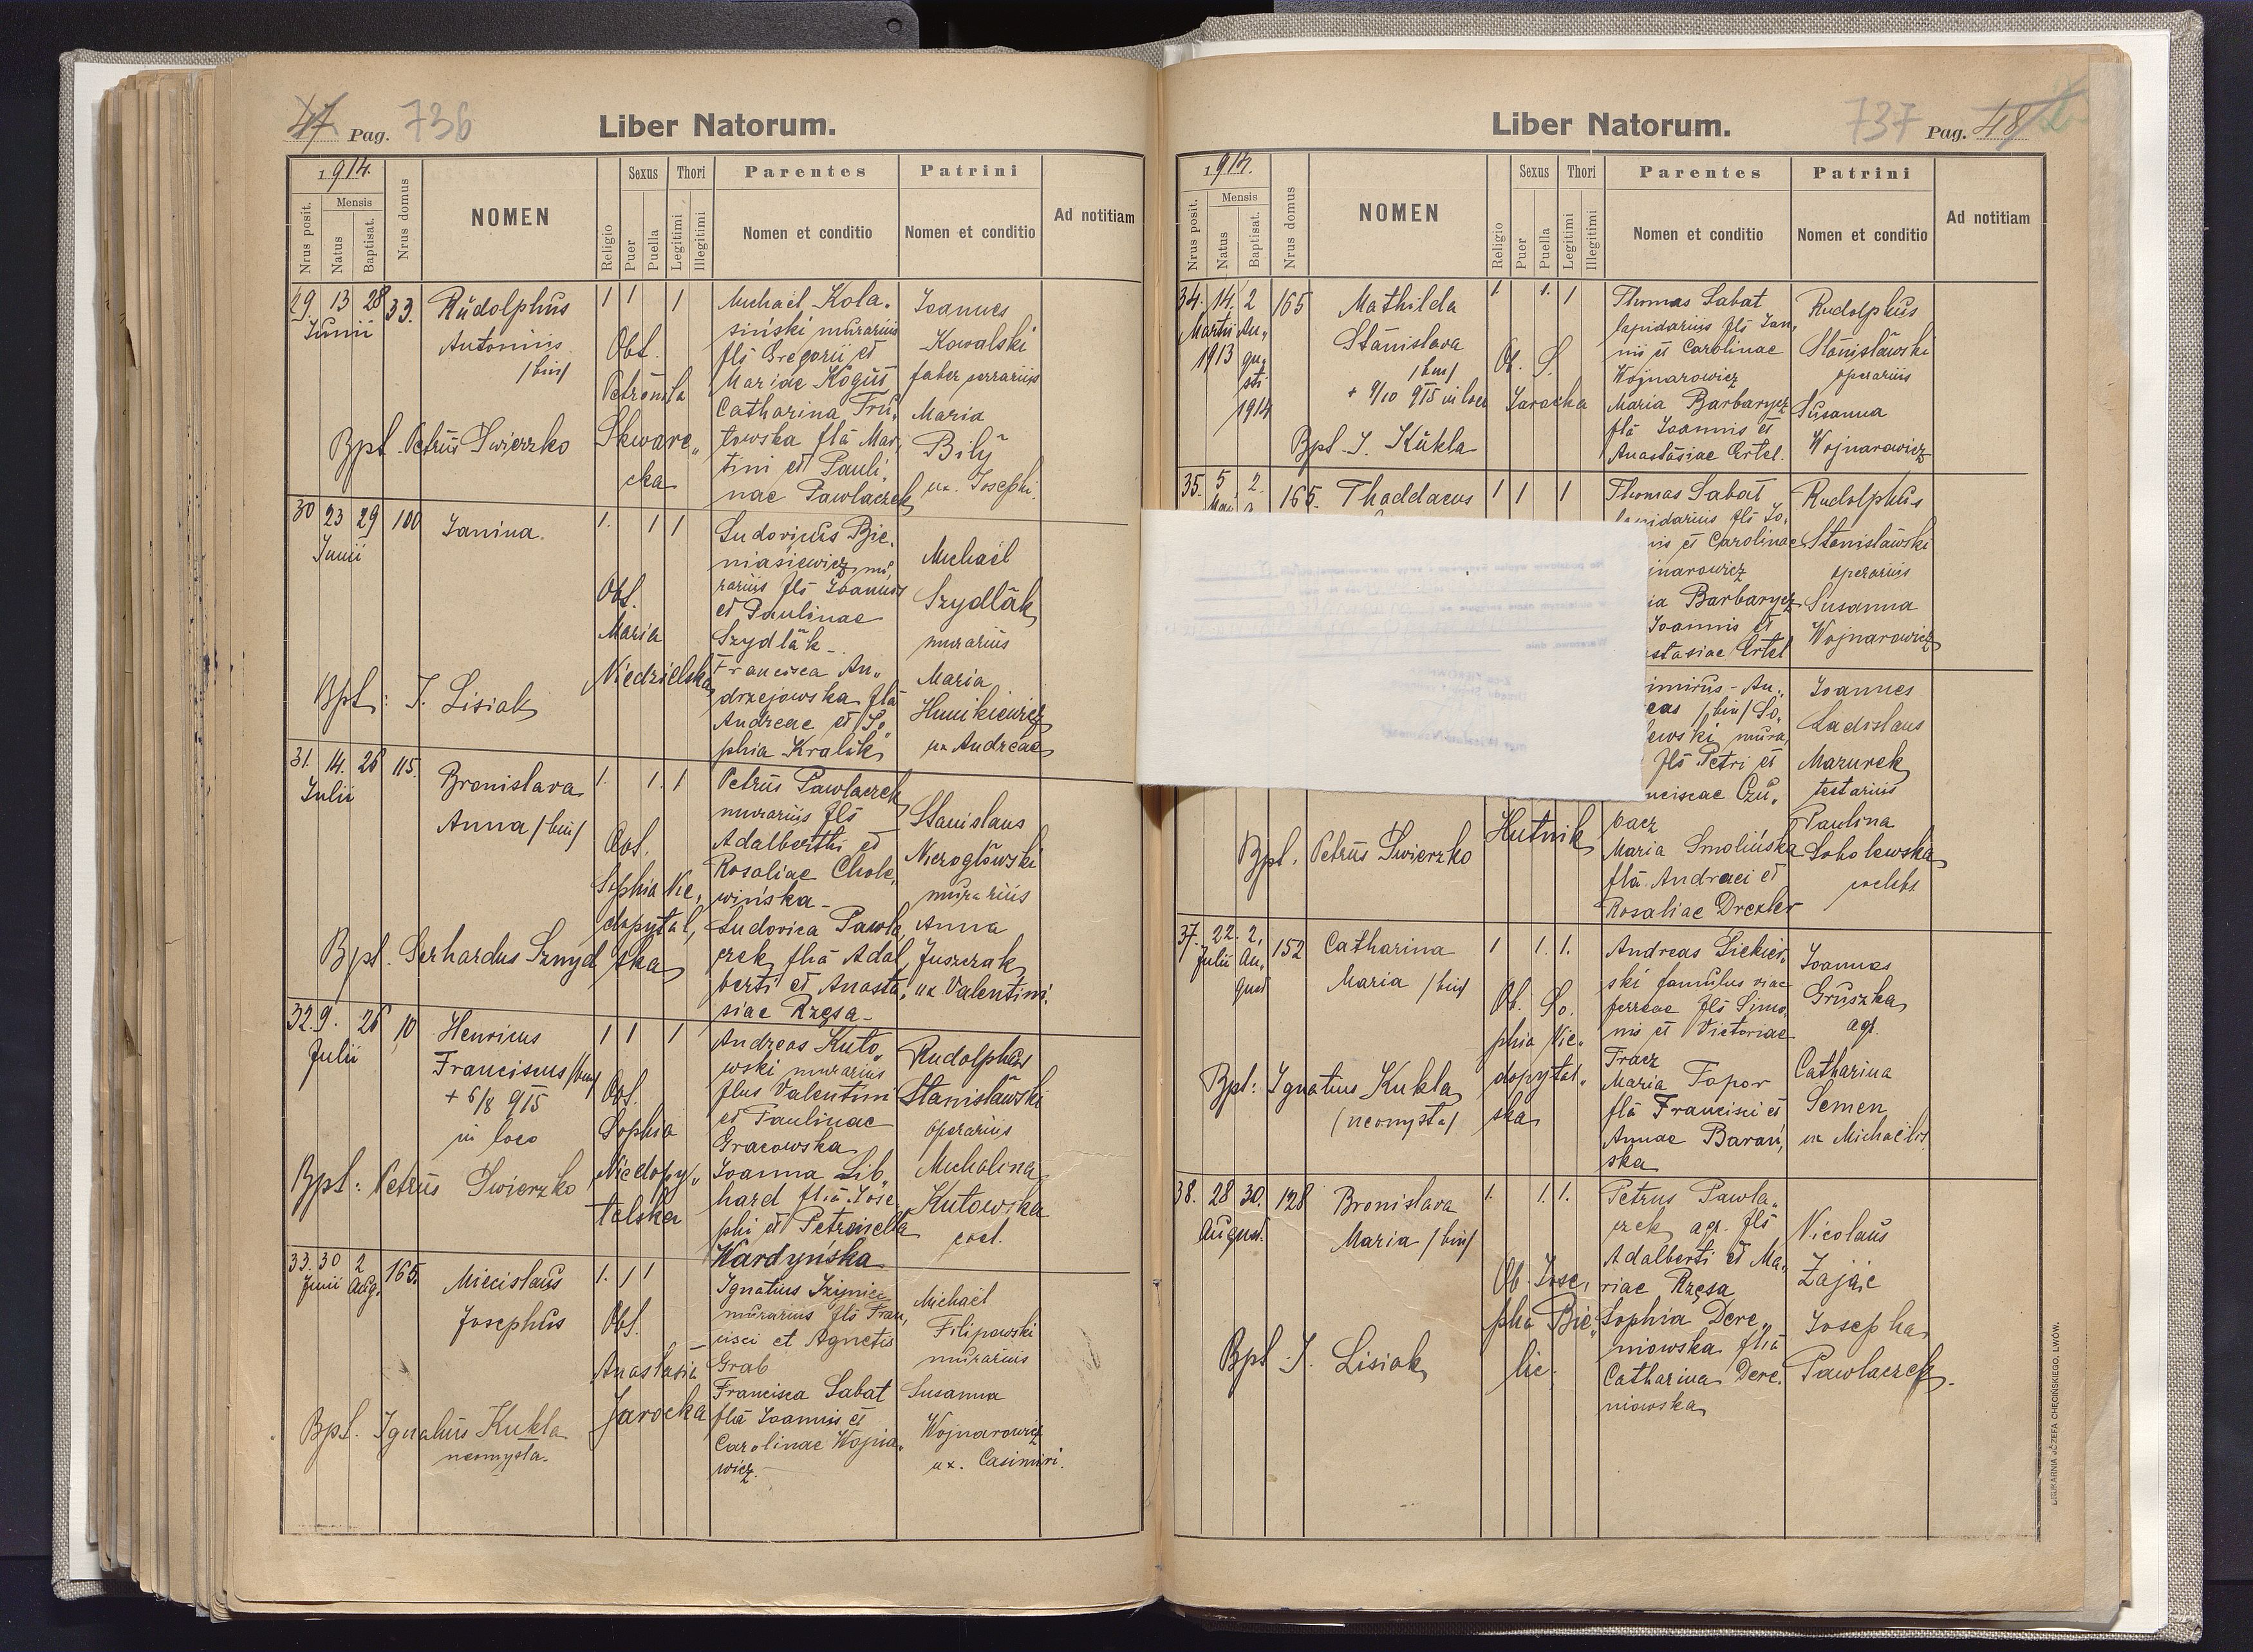 47 Pag. 736
Liber Natorum.
1914.
Nrus posit.
Mensis
Natus
Baptisat.
Nrus domus
NOMEN
Religio
Sexus
Puer
Puella
Thori
Legitimi
Illegitimi
Parentes
Nomen et conditio
Patrini
Nomen et conditio
Ad notitiam
29 13 28 33.
Junii
Rudolphus
Antonius
/bin/
Bpt. Petrus Swierzko
1 1 1
Obt.
Petronela
Skware„
cka
Michaël Kola.
siński murarius
fls Gregorii et
Mariae Kogut
Catharina Tru„
towska fla Mar„
tini et Pauli„
nae Pawlaczek
Joannes
Kowalski
faber ferrarius
Maria
Bily
ux. Josephi.
30 23 29 100
Junii
Janina.
Bpt: J. Lisiak
1. 1 1
Obt.
Maria
Niedzielska
Ludovicus Bie„
niasiewicz mu„
rarius fls Joannis
et Paulinae
Szydlak -
Francisca An„
drzejowska fla
Andreae et So„
phia Kralik
Michaël
Szydlak
murarius
Maria
Hunikiewicz
ux Andreae
31. 14. 26 115.
Julii
Bronislava
Anna /bin/
Bpt. Gerhardus Szmyd
1. 1. 1
Obt.
Sophia Nie„
dopytal„
ska
Petrus Pawlaczek
murarius fls
Adalberthi et
Rosaliae Chole„
wińska -
Ludovica Pawla„
czek flia Adal„
berti et Anasta„
siae Rzęsa -
Stanislaus
Nieroglowski
murarius
Anna
Juszczak
ux. Valentini.
32. 9. 26 10
Julii
Henricus
Franciscus /bin/
+ 6/8 915
in loco
Bpt: Petrus Swierzko
1 1 1
Obt.
Sophia
Niedopy„
talska
Andreas Kuto„
wski murarius
flus Valentini
et Paulinae
Gracowska
Joanna Lib„
hard flia Jose„
phi et Petronella
Wardyńska
Rudolphus
Stanislawski
operarius
Michalina
Kutowska
coel.
33. 30 2 165.
Junii Aug.
Miecislaus
Josephus
Bpt. Ignatius Kukla
neomysta.
1. 1 1
Obt.
Anastasia
Jarocka
Ignatius
murarius fls Fran„
cisci et Agnetis
Grab
Francisca Sabat
flia Joannis et
Carolinae Wojna„
wicz.
Michaël
Filipowski
murarius
Susanna
Wojnarowicz
ux. Casimiri.
Liber Natorum.
737 Pag. 48
1914.
Nrus posit.
Mensis
Natus
Baptisat.
Nrus domus
NOMEN
Religio
Sexus
Puer
Puella
Thori
Legitimi
Illegitimi
Parentes
Nomen et conditio
Patrini
Nomen et conditio
Ad notitiam
34. 14. 2 165
Martii Au„
1913 gu„
sti
1914
Mathilda
Stanislava
/bin/
+ 9/10 915 in loco
Bpt. J. Kukla
1. 1. 1
Ob. S.
Jarocka
Thomas Sabat
lapidarius fls Joan„
nis et Carolinae
Wojnarowicz
Maria Barbarycz
fla Joannis et
Anastasiae Ertel.
Rudolphus
Stanislawski
operarius
Susanna
Wojnarowicz
35. 5 2. 165.
Thaddaeus
1 1 1
Thomas Sabat
lapidarius fls Jo„
nis et Carolinae
jnarowicz
ia Barbarycz
Joannis et
stasiae Ertel
Rudolphus
Stanislawski
operarius
Susanna
Wojnarowicz
Bpt. Petrus Swierzko
Hutnik
imirus - An„
eas /bin/ So„
lewski mura„
fls Petri et
nciscae Czu„
pacz
Maria Smolińska
fla Andraei et
Rosaliae Drexler
Joannes
Ladislaus
Mazurek
testarius
Paulina
Sobolewska
coelebs
37. 22. 2. 152
Julii Au„
gust
Catharina
Maria /bin/
Bpt: Ignatius Kukla
/neomysta/
1 1. 1.
Ob. So„
phia Nie„
dopytal„
ska
Andreas Siekier„
ski famulus viae
ferreae fls Simo„
nis et Victoriae
Tracz
Maria Topor
fla Francisci et
Annae Barań„
ska
Joannes
Gruszka
agr.
Catharina
Semen
ux Michaëlis
38. 28 30. 128
August.
Bronislava
Maria /bin/
Bpt. J. Lisiak
1. 1. 1.
Ob. Jose„
pha Bie„
lic.
Petrus Pawla„
czek agr. fls
Adalberti et Ma„
riae Rzęsa
Sophia Dere„
niowska flia
Catharina Dere„
niowska
Nicolaus
Zając
Josepha
Pawlaczek.
DRUKARNIA JÓZEFA CHĘCIŃSKIEGO, LWÓW.